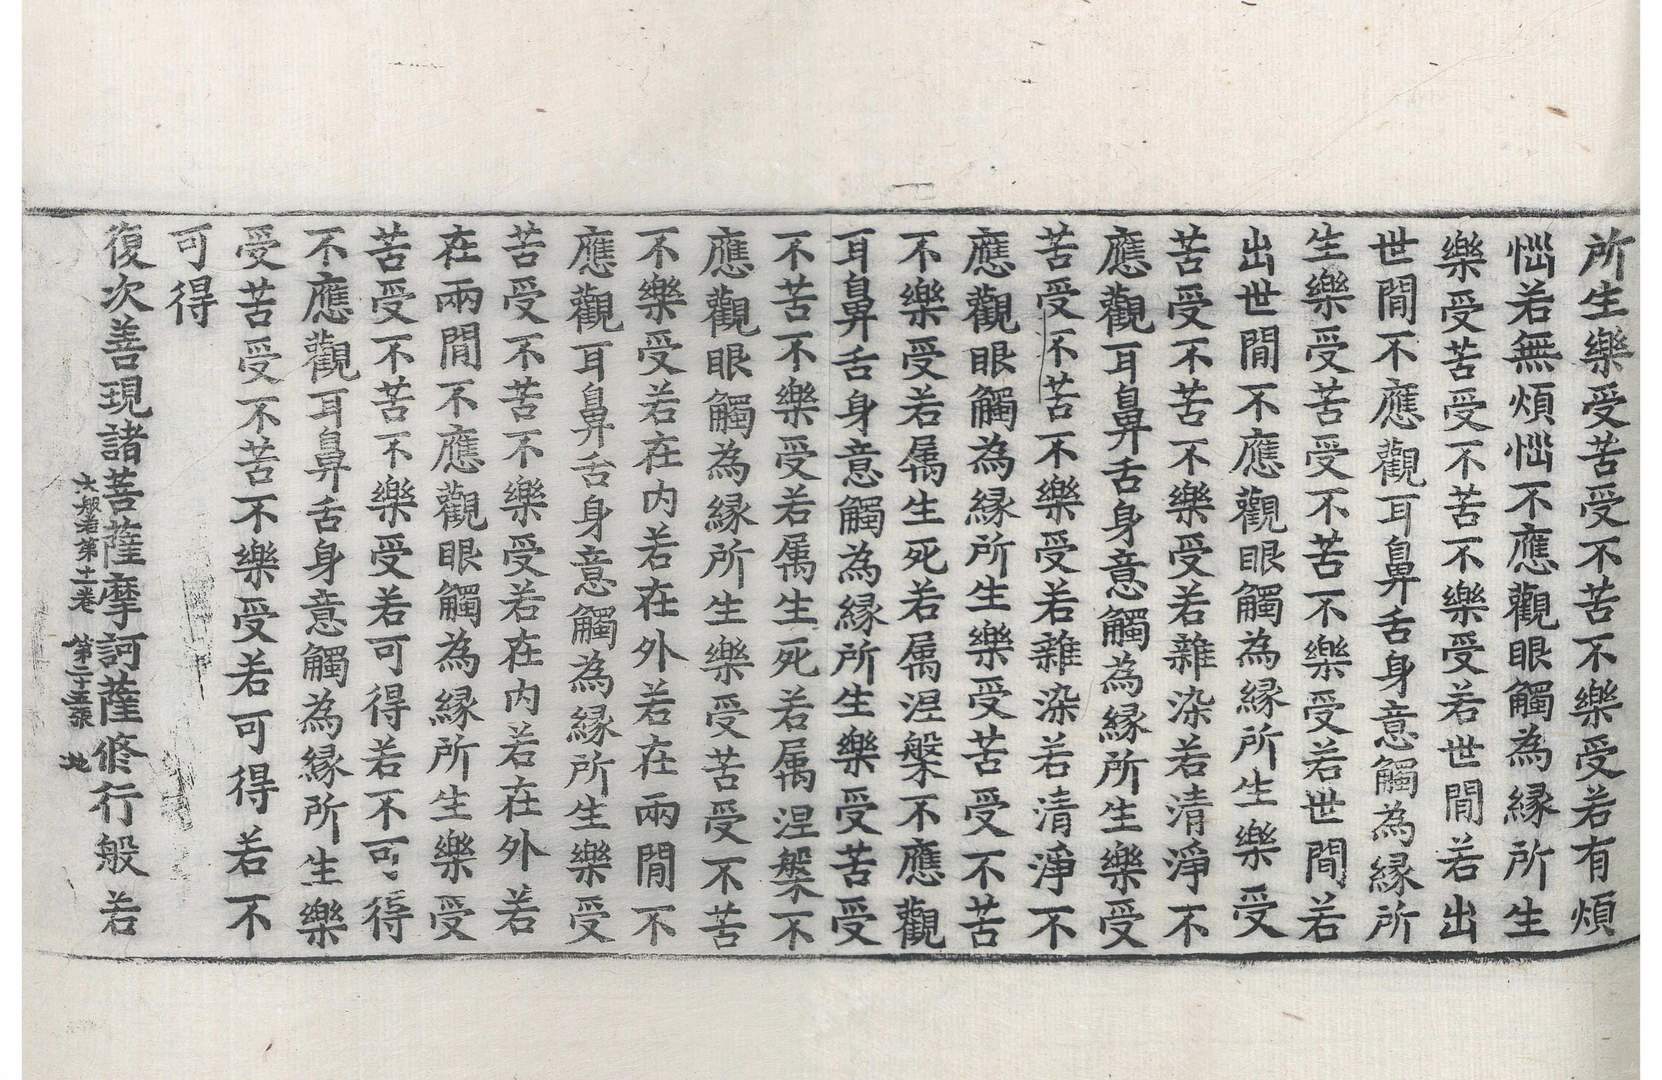 所生樂受苦受不苦不樂受若有煩
惱若無煩惱不應觀眼觸為縁所生
樂受苦受不苦不樂受若世間若出
世間不應觀耳鼻舌身意觸為縁所
生樂受苦受不苦不樂受若世間若
出世間不應觀眼觸為縁所生樂受
苦受不苦不樂受若雜染若清淨不
應觀耳鼻舌身意觸為縁所生樂受
苦受不苦不樂受若雜染若清淨不
應觀眼觸為縁所生樂受苦受不苦
不樂受若属生死若属涅槃不應觀
耳鼻舌身意觸為縁所生樂受苦受
不苦不樂受若属生死若属涅槃不
應觀眼觸為縁所生樂受苦受不苦
不樂受若在内若在外若在兩間不
應觀耳鼻舌身意觸為縁所生樂受
苦受不苦不樂受若在内若在外若
在兩間不應觀眼觸為縁所生樂受
苦受不苦不樂受若可得若不可得
不應觀耳鼻舌身意觸為縁所生樂
受苦受不苦不樂受若可得若不
可得
復次善現諸菩薩摩訶薩修行般若
大般若第十一卷 第二十五張 地